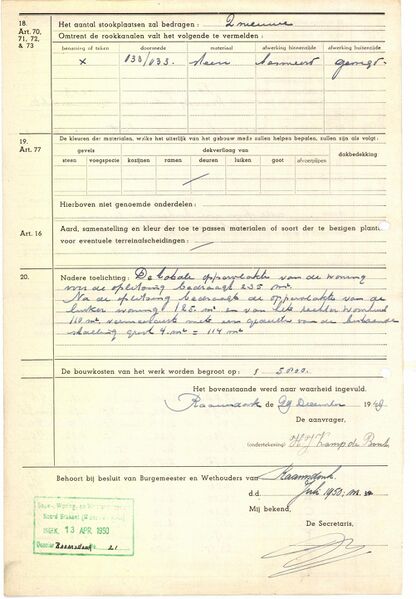 18.
Art. 70,
71, 72,
& 73
Het aantal stookplaatsen zal bedragen : 2 nieuwe
Omtrent de rookkanalen valt het volgende te vermelden :
benaming of teken doorsnede materiaal afwerking binnenzijde afwerking buitenzijde
x 033/033 steen
19.
Art. 77
De kleuren der materialen, welke het uiterlijk van het gebouw mede zullen helpen bepalen, zullen zijn als volgt :
gevels dekverflaag van dakbedekking
steen voegspecie kozijnen ramen deuren luiken goot afvoerpijpen
Hierboven niet genoemde onderdelen :
Art. 16
Aard, samenstelling en kleur der toe te passen materialen of soort der te bezigen plant
voor eventuele terreinafscheidingen :
20.
Nadere toelichting : De totale oppervlakte van de woning
voor de splitsing bedraagt 235 m².
Na de splitsing bedraagt de oppervlakte van de
linker woning 125 m² en van het rechter woonhuis
110 m² vermeerderd met een gedeelte van de bestaande
stalling groot 4 m² = 114 m²
De bouwkosten van het werk worden begroot op :
Het bovenstaande werd naar waarheid ingevuld.
Raamsdonk de 29 December 1949
De aanvrager,
(ondertekening) H J Kamp de
Behoort bij besluit van Burgemeester en Wethouders van Raamsdonk
d.d. Juli 1950
Mij bekend,
De Secretaris,
INGEK. 13 APR 1950
21